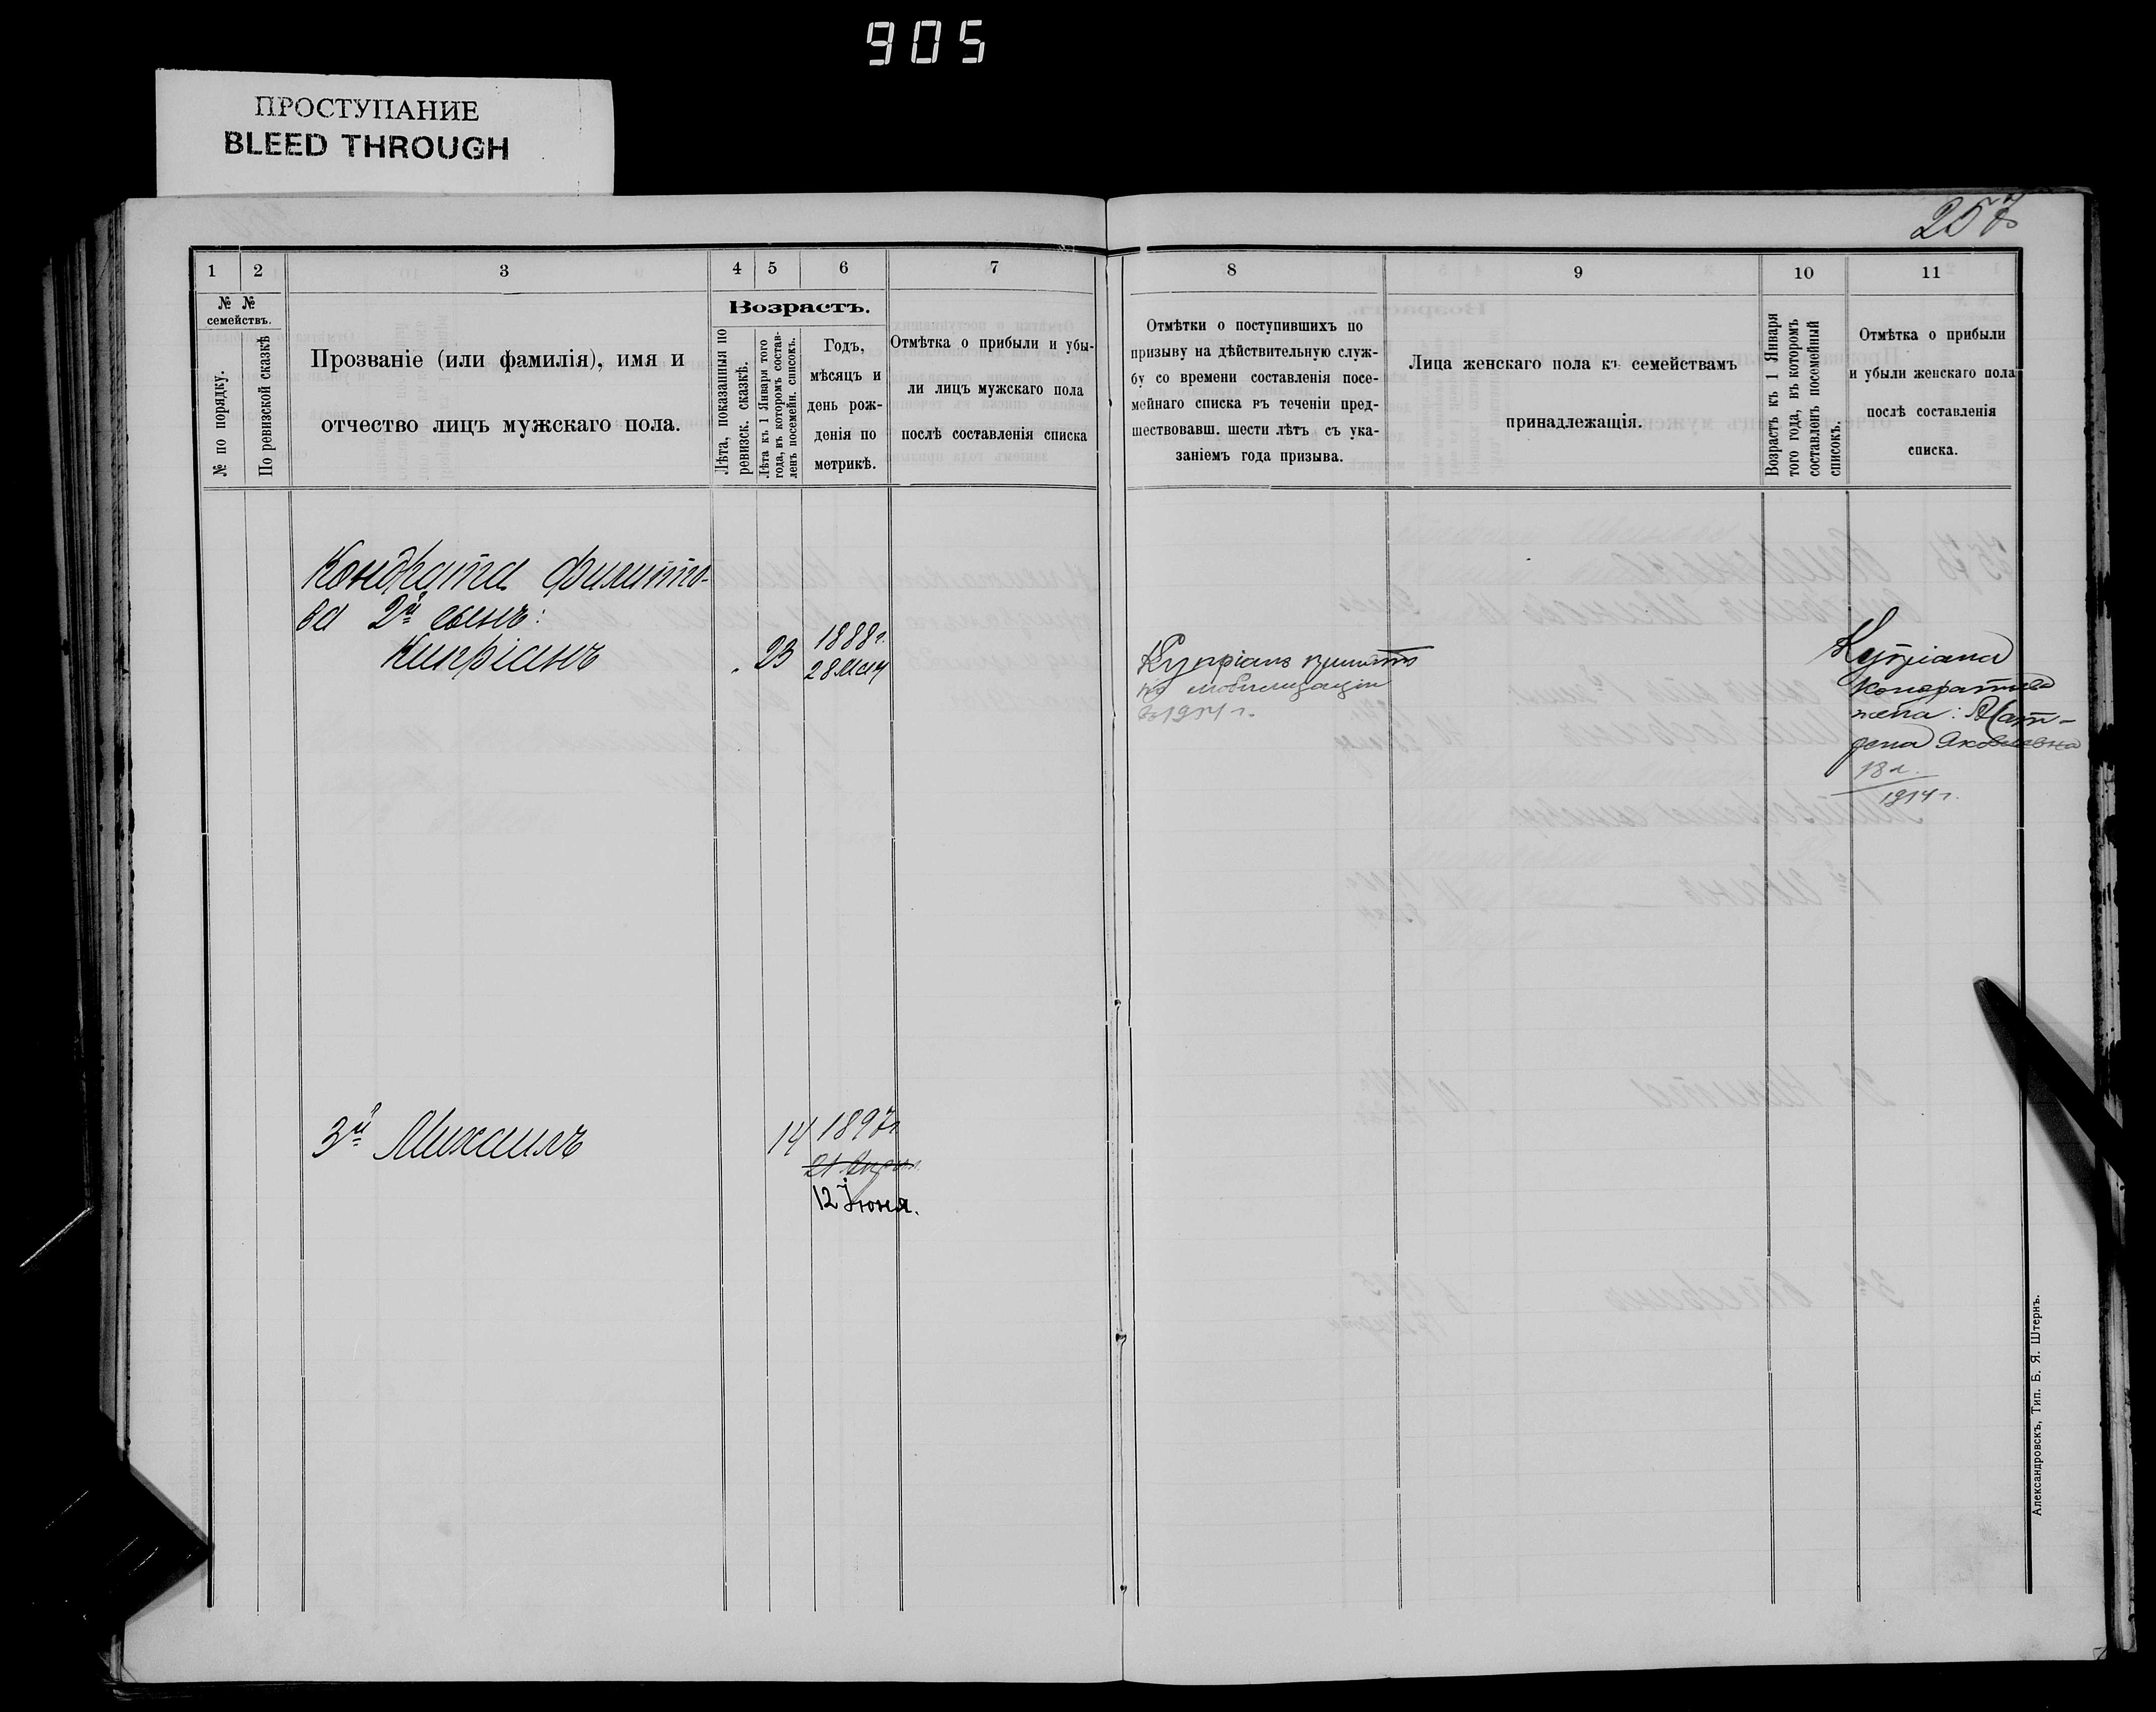 905
ПРОСТУПАНИЕ
BLEED THROUGH
257
1
2
3
4
5
6
7
8
9
10
11
№ №
семействъ.
№ по порядку.
По ревизской сказкѣ
Прозваніе (или фамилія), имя и
отчество лицъ мужскаго пола.
Возрастъ.
Лѣта, показанныя по
ревизск. сказкѣ.
Лѣта къ 1 Января того
года, въ которомъ состав-
ленъ посемейн. списокъ.
Годъ,
мѣсяцъ и
день рож-
денія по
метрикѣ.
Отмѣтка о прибыли и убы-
ли лицъ мужскаго пола
послѣ составленія списка
Отмѣтки о поступившихъ по
призыву на дѣйствительную служ-
бу со времени составленія посе-
мейнаго списка въ теченіи пред-
шествовавш. шести лѣтъ съ ука-
заніемъ года призыва.
Лица женскаго пола къ семействамъ
принадлежащія.
Возрастъ къ 1 Января
того года, въ которомъ
составленъ посемейный
списокъ.
Отмѣтка о прибыли
и убыли женскаго пола
послѣ составленія
списка.
Кондрата Филиппо-
ва 2й сынъ:
Кипріанъ
23
1888 г.
28 Мая
Купріанъ принятъ
по мобилизаціи
въ 1914 г.
Купріана
Кондратьева
жена: Мат-
рена Яковлевна
18 л.
1914 г.
3й Михаилъ
14
1897 г
21 Апрѣл.
12 Іюня.
Александровскъ, Тип. Б. Я. Штернъ.